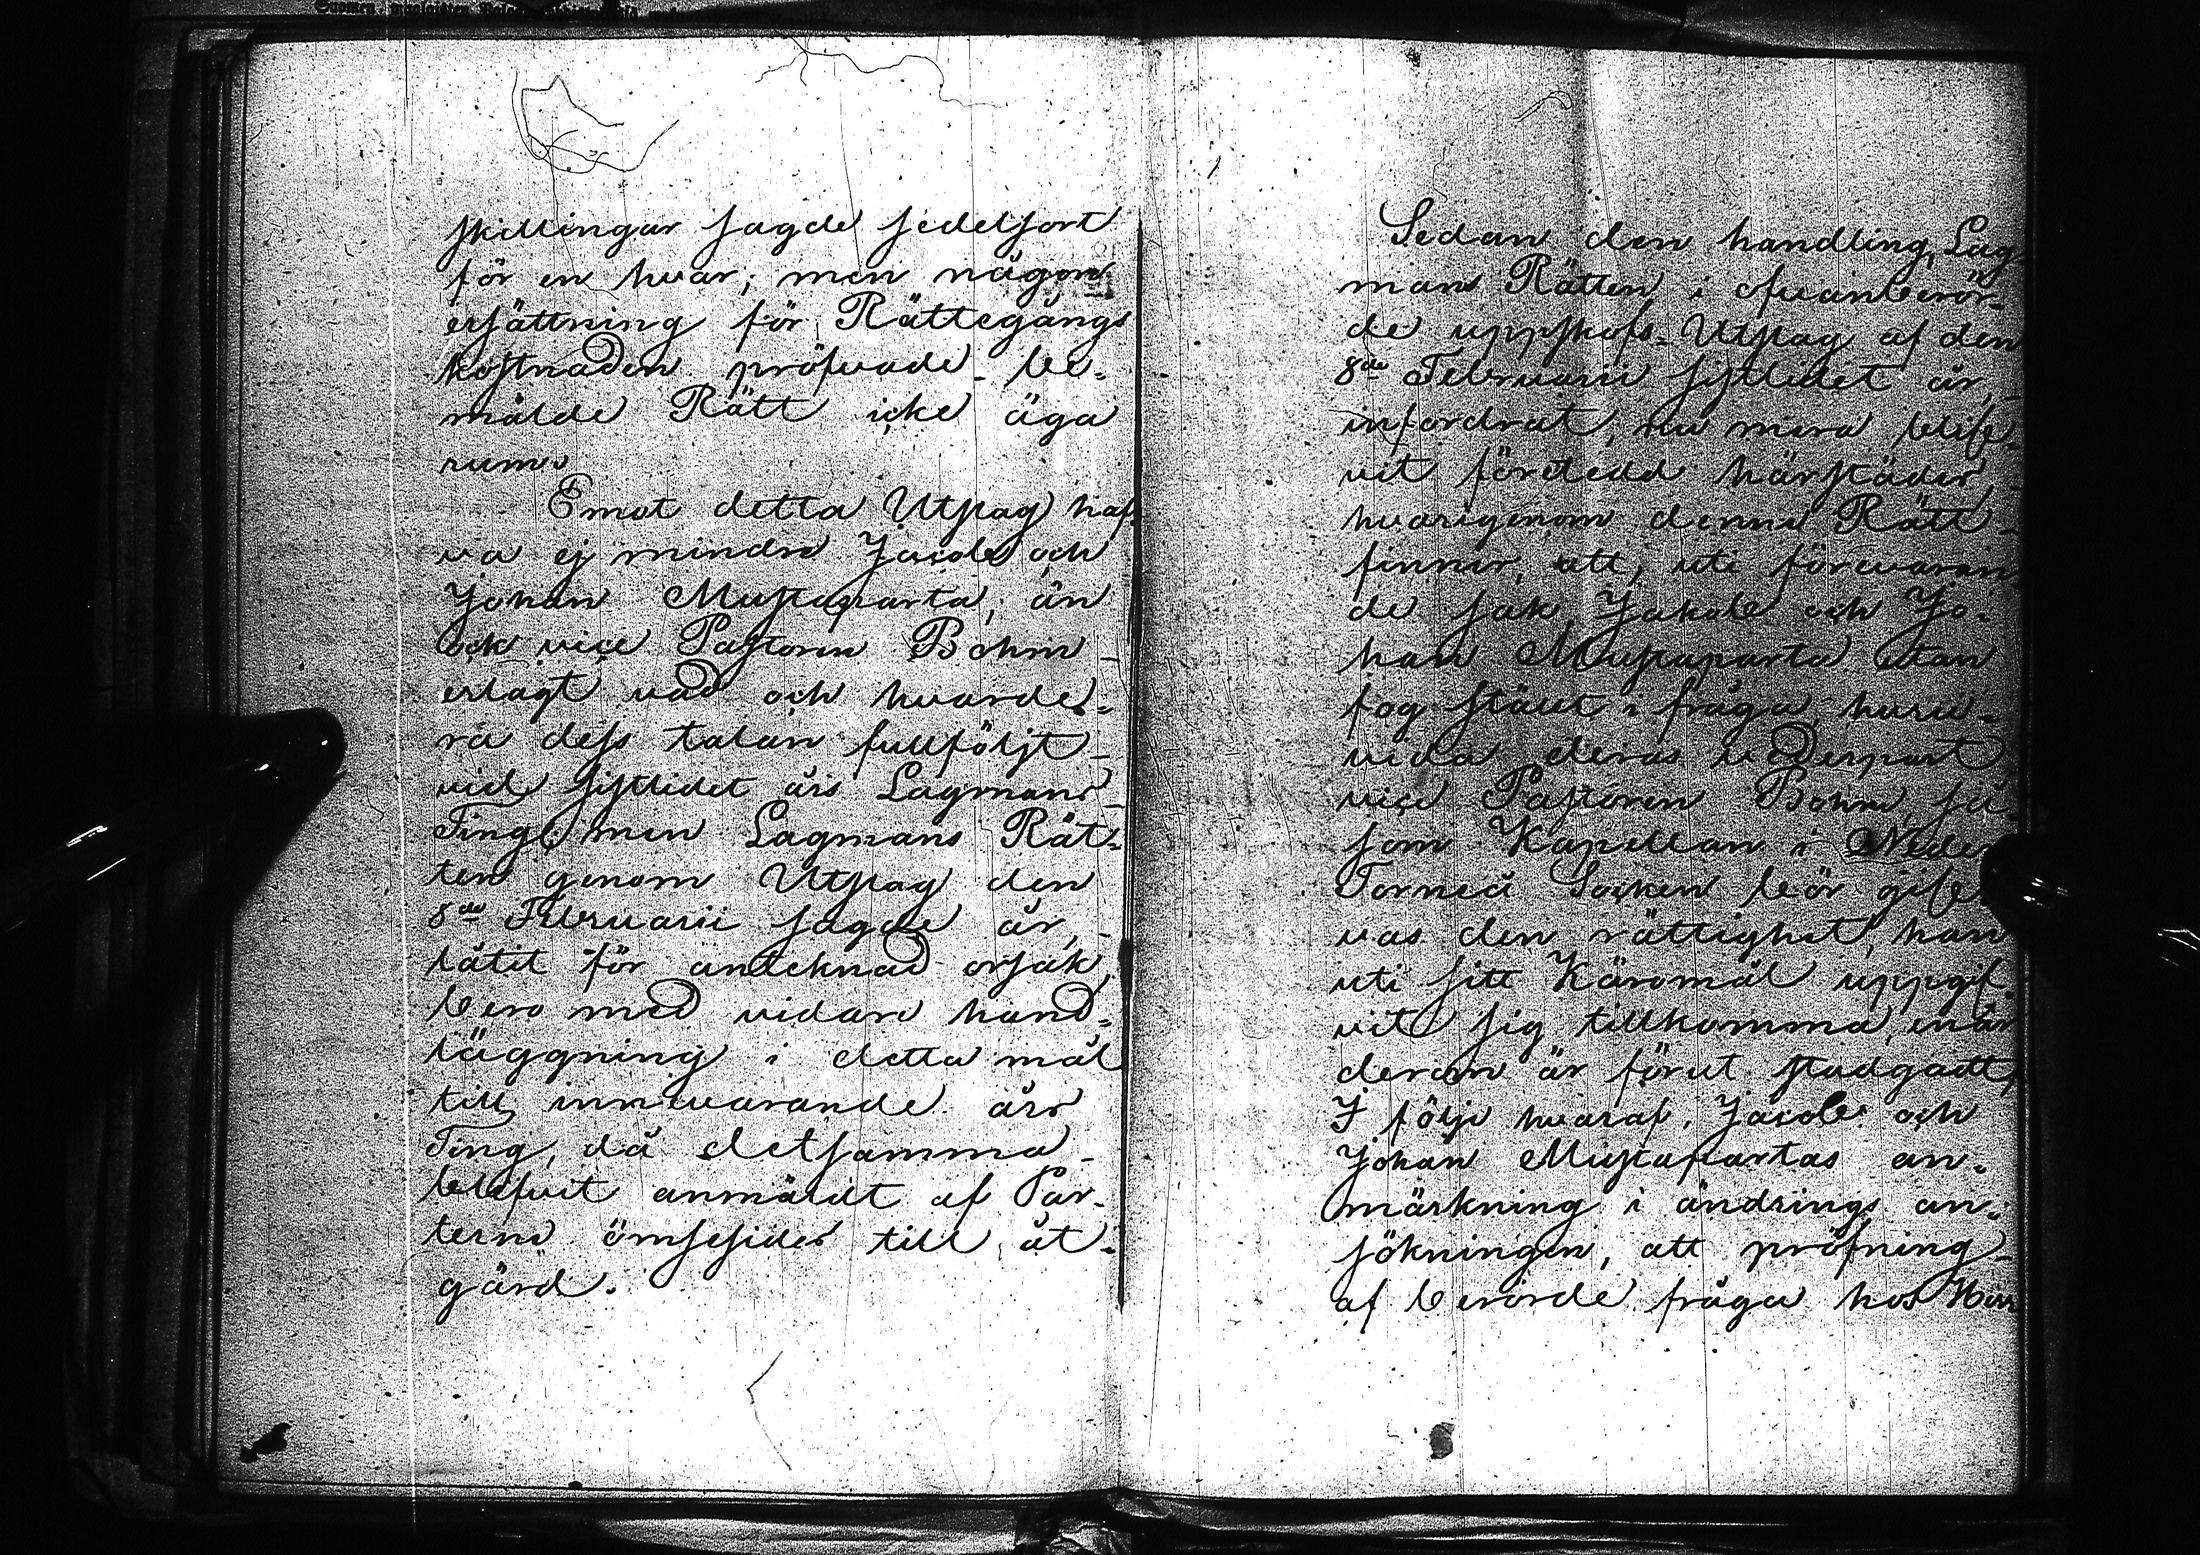 skillingar sagde sedelsort
för en hvar; men någon
ersättning för Rättegångs
kostnaden pröfvade be-
mälde Rätt icke äga
rum.
Emot detta Utslag haf-
va ej mindre Jacob och
Johan Mustaparta, än
ock vice Pastoren Bohm
erlagt vad och hvarde-
ra dess talan fullföljt
vid sistlidet års Lagmans
Ting, men Lagmans Rät-
ten genom Utslag den
8de Februarii sagde år,
låtit för anteknad orsak,
bero med vidare hand-
läggning i detta mål
till innevarande års
Ting, då detsamma
blifvit anmäldt af Par-
terne ömsesides till åt-
gärd.
Sedan den handling, Lag
mans Rätten i ofvanberör-
de uppskofs-Utslag af den
8de Februarii sistlidet år,
infordrat, nu mera blif-
vit företedd härstädes,
hvarigenom denne Rätt
finner, att, uti förevaran-
de sak, Jakob och Jo-
han Mustaparta utan
fog stält i fråga, huru-
vida deras vederpart
vice Pastoren Bohm, så-
som Kapellan i Neder
Torneå Socken bör gif-
vas den rättighet, han
uti sitt Käromål uppgif-
vit sig tillkomma, enär
derom är förut stadgadt,
I följe hvaraf, Jacob och
Johan Mustapartas an-
märkning i ändrings an-
sökningen, att pröfning
af berörde fråga hos Här